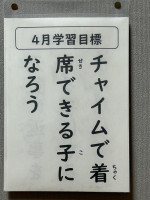 4月学習目標
チャイムで着
席できる子に
なろう